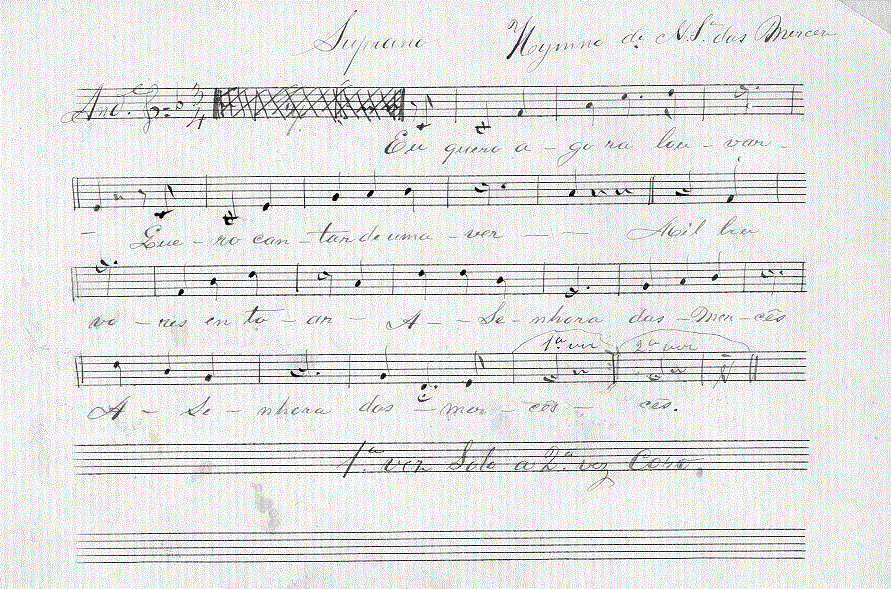 Soprano Hymno de N. S.ª das Merces
And.te 3/4
Eu quero a - go ra lou - var -
- Que - ro can - tar de uma - ver - - Mil lou
vo - res en to - ar - A - - Se - nhora das - Mer - cês
1.ª vez 2.ª vez
A - Se - nhora das - mer - cês - cês.
1.ª vez Solo a 2.ª vez Coro.